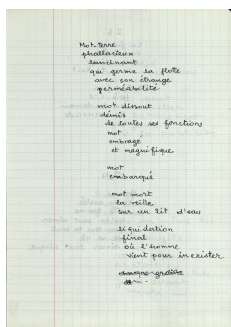 Mot-terre
phallacieux
lancinant
qui germe sa flote
avec son étrange
perméabilité
mot dissout
démis
de toutes ses fonctions
mot
ombragé
et magnifique
mot
embarqué
mot mort
la veille
sur un lit d'eau
liquidation
final
où l'homme
vient pour inexister